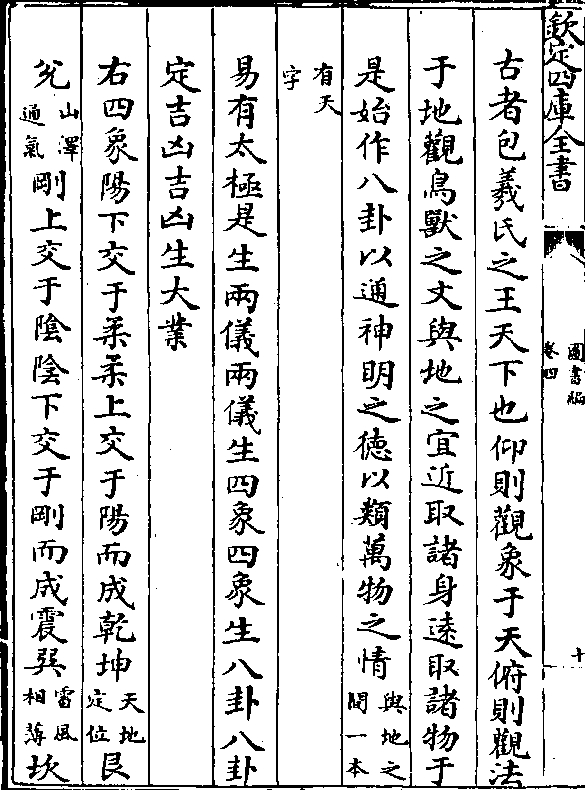 欽定四庫全書
圖書編
卷四
十
古者包羲氏之王天下也仰則觀象于天俯則觀法
于地觀鳥獸之文與地之宜近取諸身遠取諸物于
是始作八卦以通神明之德以類萬物之情與地之間一本
有天字
易有太極是生兩儀兩儀生四象四象生八卦八卦
定吉凶吉凶生大業
右四象陽下交于柔柔上交于陽而成乾坤天地定位艮
兊山澤通氣剛上交于陰陰下交于剛而成震巽雷風相薄坎